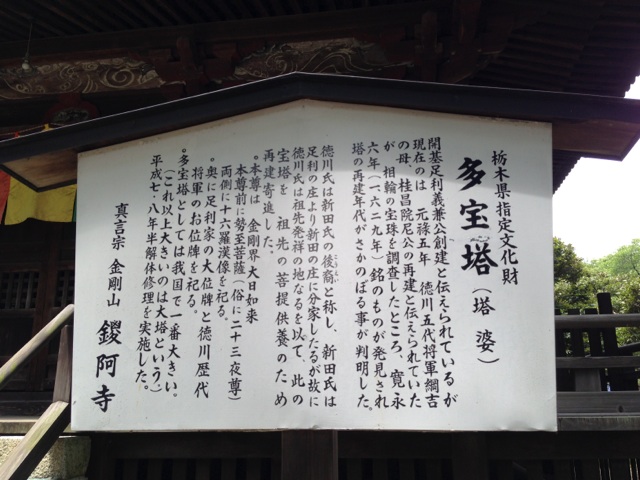 栃木県指定文化財
多宝塔(塔婆)
開基足利義兼公創建と伝えられているが
現在のは 元禄五年 徳川五代将軍綱吉
の母 桂昌院尼公の再建と伝えられていた
が、相輪の宝珠を調査したところ、寛永
六年(一六二九年)銘のものが発見され
塔の再建年代がさかのぼる事が判明した。
徳川氏は新田氏の後裔と称し、新田氏は
足利の庄より新田の庄に分家したるが故に
徳川氏は祖先発祥の地なるを以て、此の
宝塔を 祖先の菩提供養のため
再建寄進した。
•本尊は 金剛界大日如来
本尊前に勢至菩薩(俗に二十三夜尊)
両側に十六羅漢像を祀る。
•奥に足利家の大位牌と徳川歴代
将軍のお位牌を祀る。
•多宝塔としては我国で一番大きい。
(これ以上大きいのは大塔という)
平成七・八年半解体修理を実施した。
真言宗 金剛山 鑁阿寺